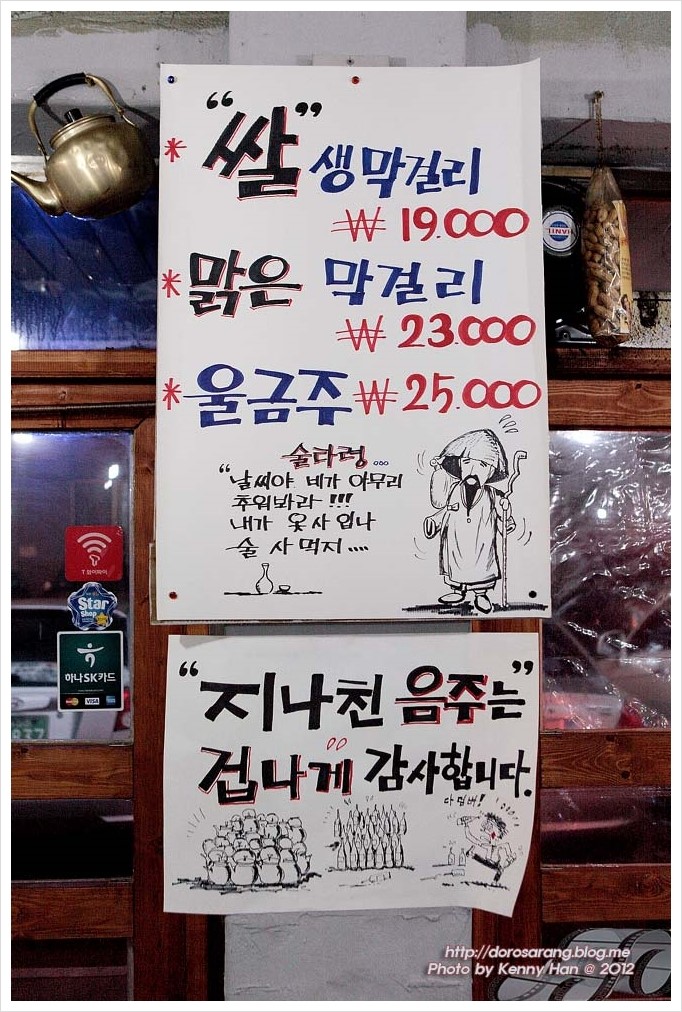 * "쌀" 생막걸리
₩ 19.000
* 맑은 막걸리
₩ 23.000
* 울금주 ₩ 25.000
술타령...
"날씨야 네가 아무리
추워봐라 !!!
내가 옷 사 입나
술 사 먹지....
T 와이파이
Star
Shop
하나SK카드
VISA
"지나친 음주는"
겁나게 감사합니다.
다덤벼!
http://dorosarang.blog.me
Photo by Kenny Han @ 2012